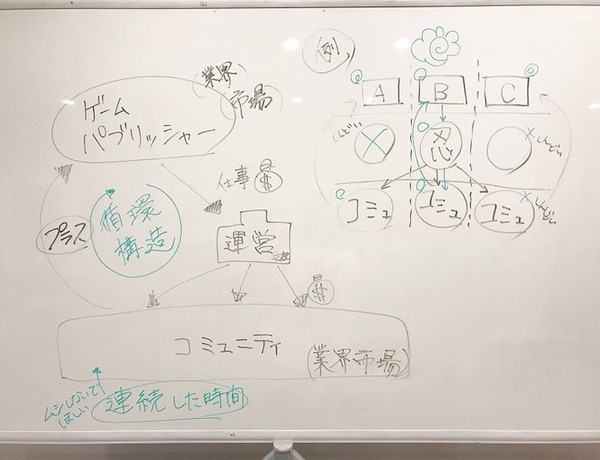 ゲーム
パブリッシャー
業界
市場
仕事
$
プラス
循環
構造
運営
$
コミュニティ
(業界市場)
ムシしないで
ほしい
連続した時間
例
A
B
C
しんどい
しんどい
コミュ
コミュ
コミュ
しんどい